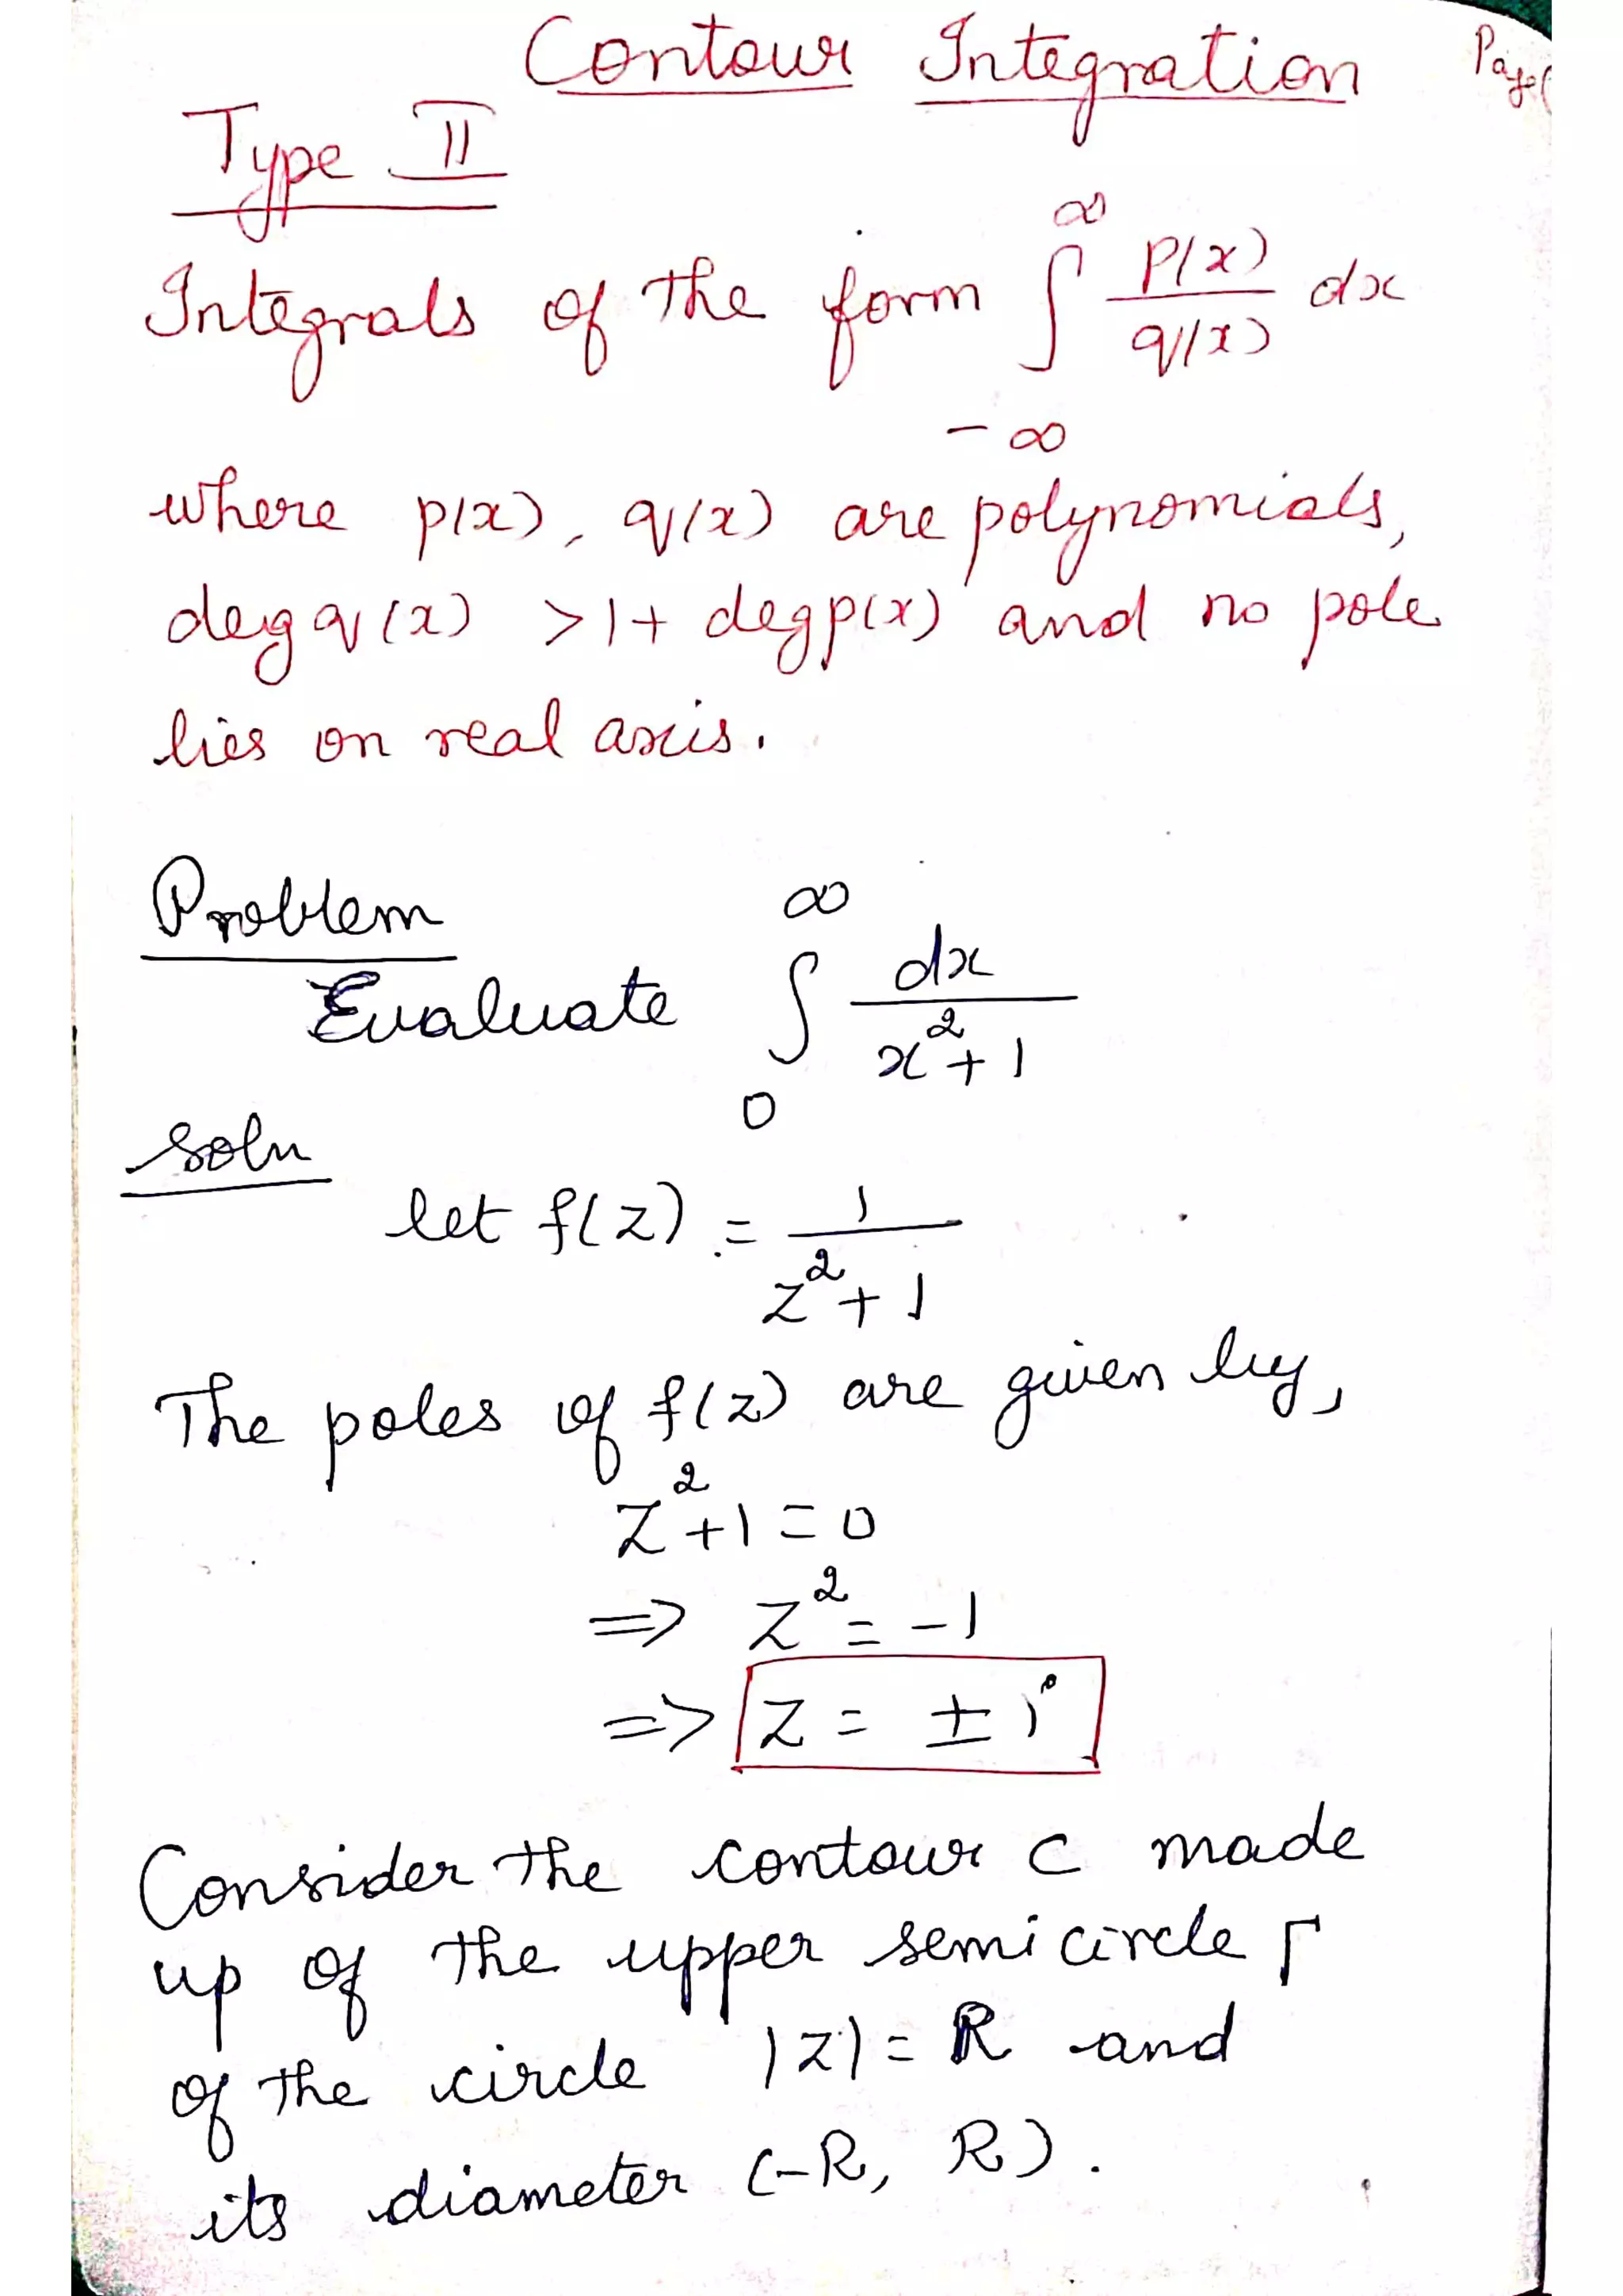 Contour Integration
Type II
Integrals of the form ∫_{-∞}^{∞} p(x)/q(x) dx
where p(x), q(x) are polynomials,
deg q(x) > 1 + deg p(x) and no pole
lies on real axis.
Problem
Evaluate ∫_0^∞ dx/(x²+1)
Soln
let f(z) = 1/(z²+1)
The poles of f(z) are given by,
z²+1=0
=> z² = -1
=> z = ± i
Consider the contour C made
up of the upper semi circle Γ
of the circle |z| = R and
its diameter (-R, R).